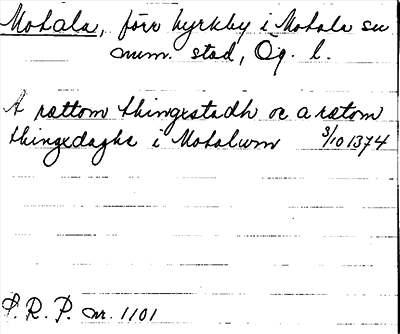 Motala, förr kyrkby i Motala sn
num. stad, Ög. l.
A rættom thingxstadh oc a rætom
thingxdaghe i Motalum 3/10 1374
P. R. P. nr. 1101